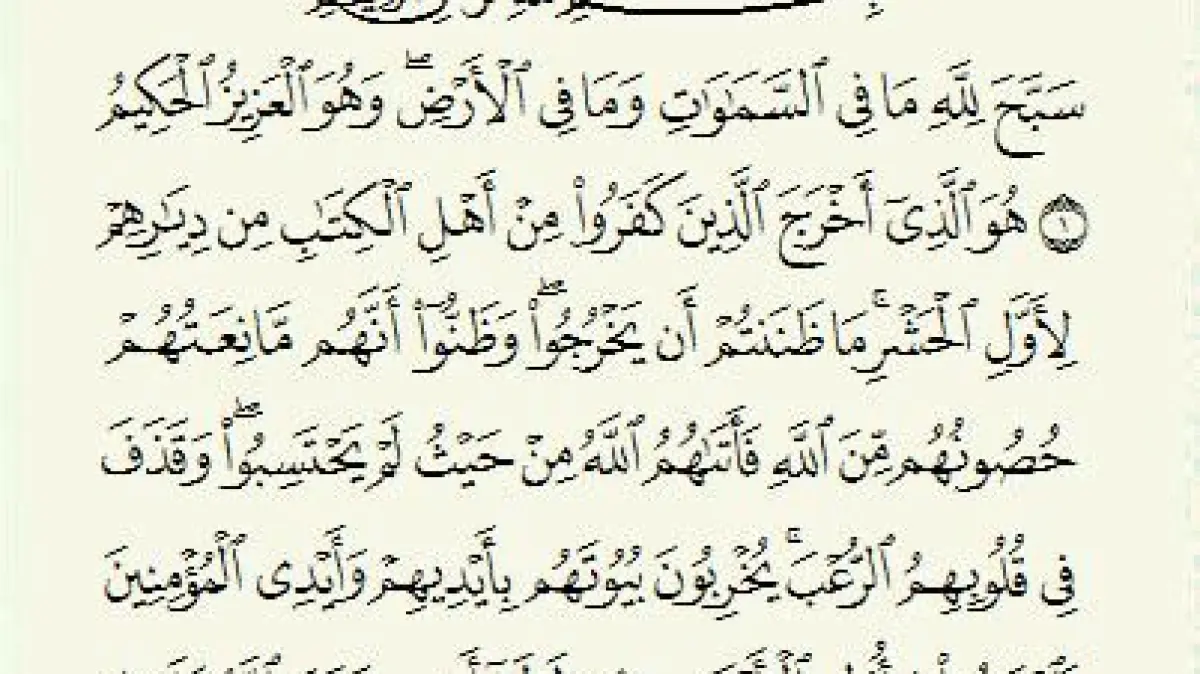 سَبَّحَ لِلَّهِ مَا فِي ٱلسَّمَٰوَٰتِ وَمَا فِي ٱلْأَرْضِۖ وَهُوَ ٱلْعَزِيزُ ٱلْحَكِيمُ
١ هُوَ ٱلَّذِىٓ أَخْرَجَ ٱلَّذِينَ كَفَرُوا۟ مِنْ أَهْلِ ٱلْكِتَٰبِ مِن دِيَٰرِهِمْ
لِأَوَّلِ ٱلْحَشْرِۚ مَا ظَنَنتُمْ أَن يَخْرُجُوا۟ۖ وَظَنُّوٓا۟ أَنَّهُم مَّانِعَتُهُمْ
حُصُونُهُم مِّنَ ٱللَّهِ فَأَتَىٰهُمُ ٱللَّهُ مِنْ حَيْثُ لَمْ يَحْتَسِبُوا۟ۖ وَقَذَفَ
فِي قُلُوبِهِمُ ٱلرُّعْبَۚ يُخْرِبُونَ بُيُوتَهُم بِأَيْدِيهِمْ وَأَيْدِى ٱلْمُؤْمِنِينَ